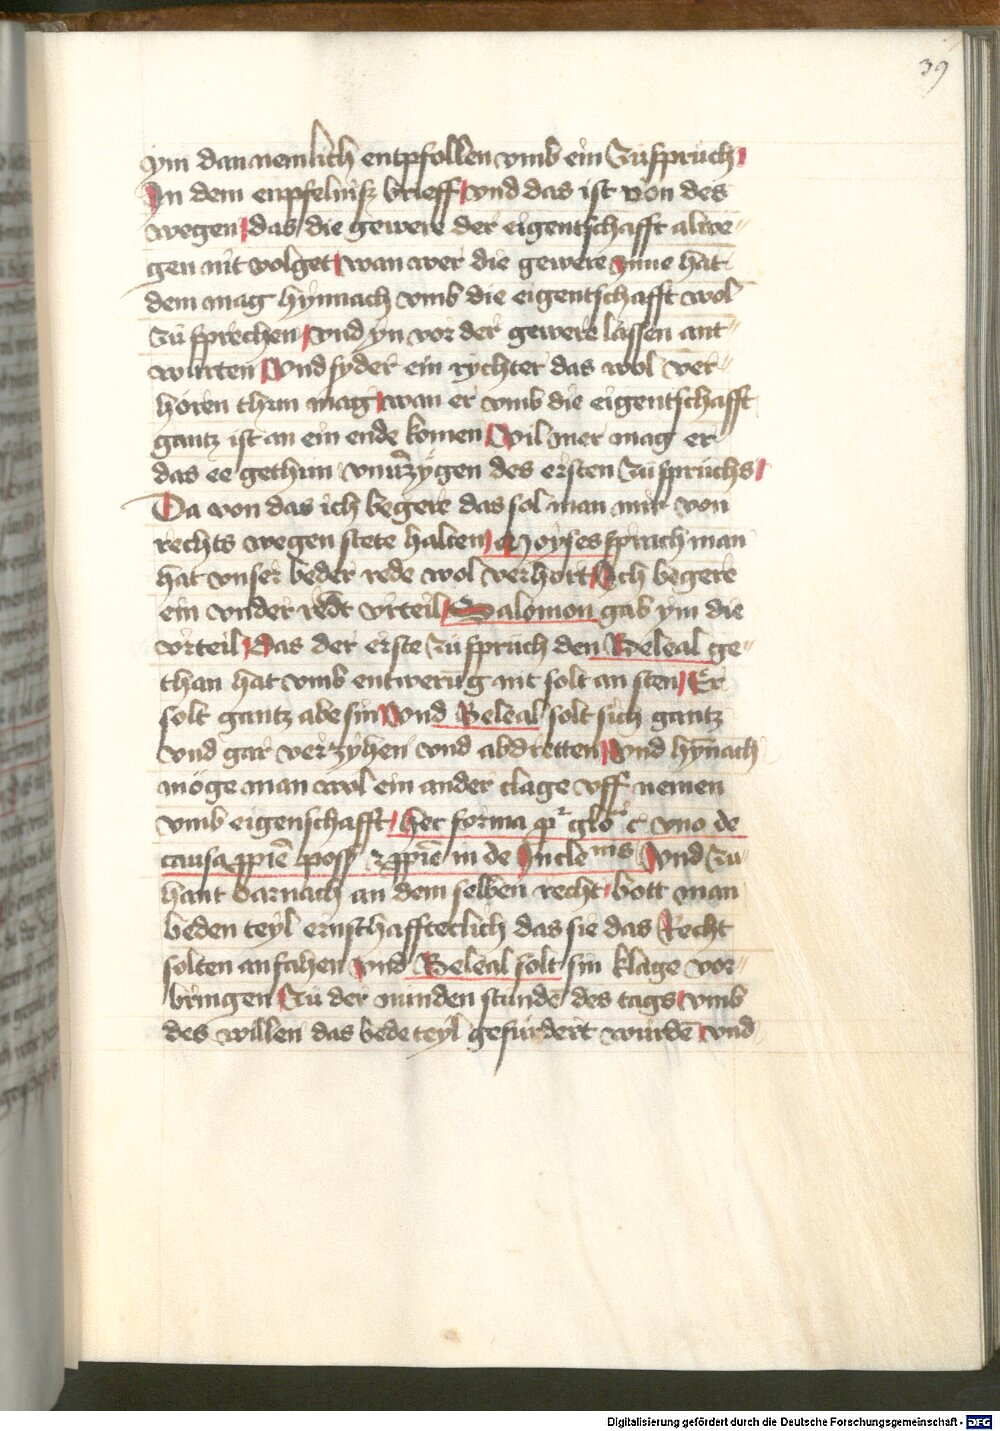 39
ym dan nemlich entpfollen vmb ein Zuspruch
In dem enpfelnisz brieff vnd das ist von des
wegen das die gewere der eigentschafft alwe"
gen nit volget wan wer die gewere ynne hat
dem mag hynnach vmb die eigentschafft wol
zu sprechen vnd yn vor der gewere lassen ant"
wurten Vnd syder ein rychter das wol ver"
horen thun mag wan er vmb die eigentschafft
gantz ist an ein ende komen Wil mer mag er
das ee gethun vnuerzygen des ersten Zuspruchs
Da von das ich begere das sol man mir von
rechts wegen stete halten Moyses sprach man
hat vnser beder rede wol verhort Ich begere
ein vnder redt vrteil Salomon gab ym die
vrteil das der erste Zuspruch den Beleal ge"
than hat vmb entwerūg nit solt an sten Er
solt gantz abe sin Vnd Beleal solt sich gantz
vnd gar verzyhen vnd abdretten Vnd hynach
möge man wol ein ander clage vff nemen
vmb eigenschafft her forma glo vno de
causa in de Vnd zu
hant darnach an dem selben recht bott man
beden teyl ernsthaffteclich das sie das Recht
solten anfahen vnd Beleal solt sin klage vor"
bringen Zu der nunden stunde des tags vmb
des willen das bede teyl gefurdert wurdē vnd
Digitalisierung gefördert durch die Deutsche Forschungsgemeinschaft - DFG